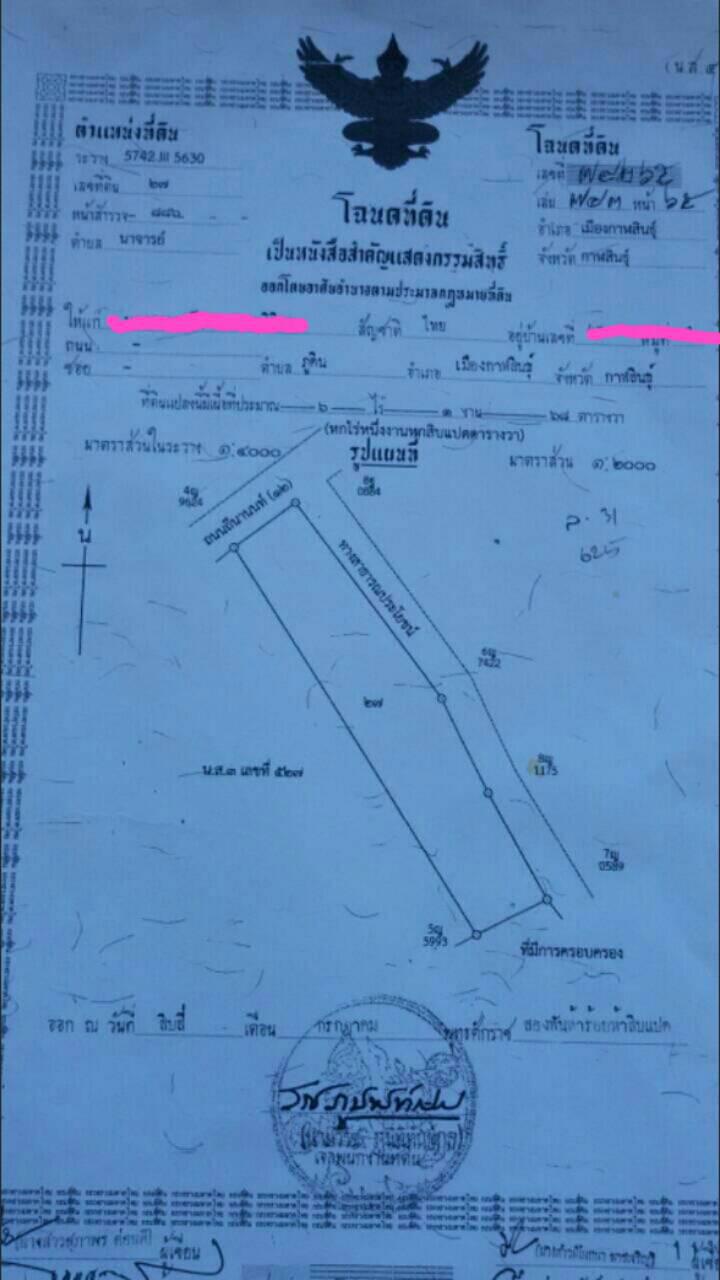 (น.ส.๔
ตำแหน่งที่ดิน
ระวาง 5742 III 5630
เลขที่ดิน ๒๗
หน้าสำรวจ
ตำบล นาจารย์
โฉนดที่ดิน
เลขที่ ๗๔๒๖๕
เล่ม ๗๔๓ หน้า ๖๕
อำเภอ เมืองกาฬสินธุ์
จังหวัด กาฬสินธุ์
โฉนดที่ดิน
เป็นหนังสือสำคัญแสดงกรรมสิทธิ์
ออกโดยอาศัยอำนาจตามประมวลกฎหมายที่ดิน
ให้แก่ สัญชาติ ไทย อยู่บ้านเลขที่ หมู่ที่
ถนน -
ซอย - ตำบล ภูดิน อำเภอ เมืองกาฬสินธุ์ จังหวัด กาฬสินธุ์
ที่ดินแปลงนี้มีเนื้อที่ประมาณ ๖ ไร่ ๑ งาน ๖๘ ตารางวา
(หกไร่หนึ่งงานหกสิบแปดตารางวา)
มาตราส่วนในระวาง ๑:๔๐๐๐ รูปแผนที่ มาตราส่วน ๑:๒๐๐๐
4ญ
9624
8ฐ
0884
ถนนถีนานนท์ (๑๒)
ทางสาธารณประโยชน์
น
6ญ
7422
๒๗
น.ส.๓ เลขที่ ๕๒๗
8ญ
1175
7ญ
0589
5ญ
5993
ที่มีการครอบครอง
ออก ณ วันที่ สิบสี่ เดือน กรกฎาคม พุทธศักราช สองพันห้าร้อยห้าสิบแปด
เจ้าพนักงานที่ดิน
ผู้เขียน